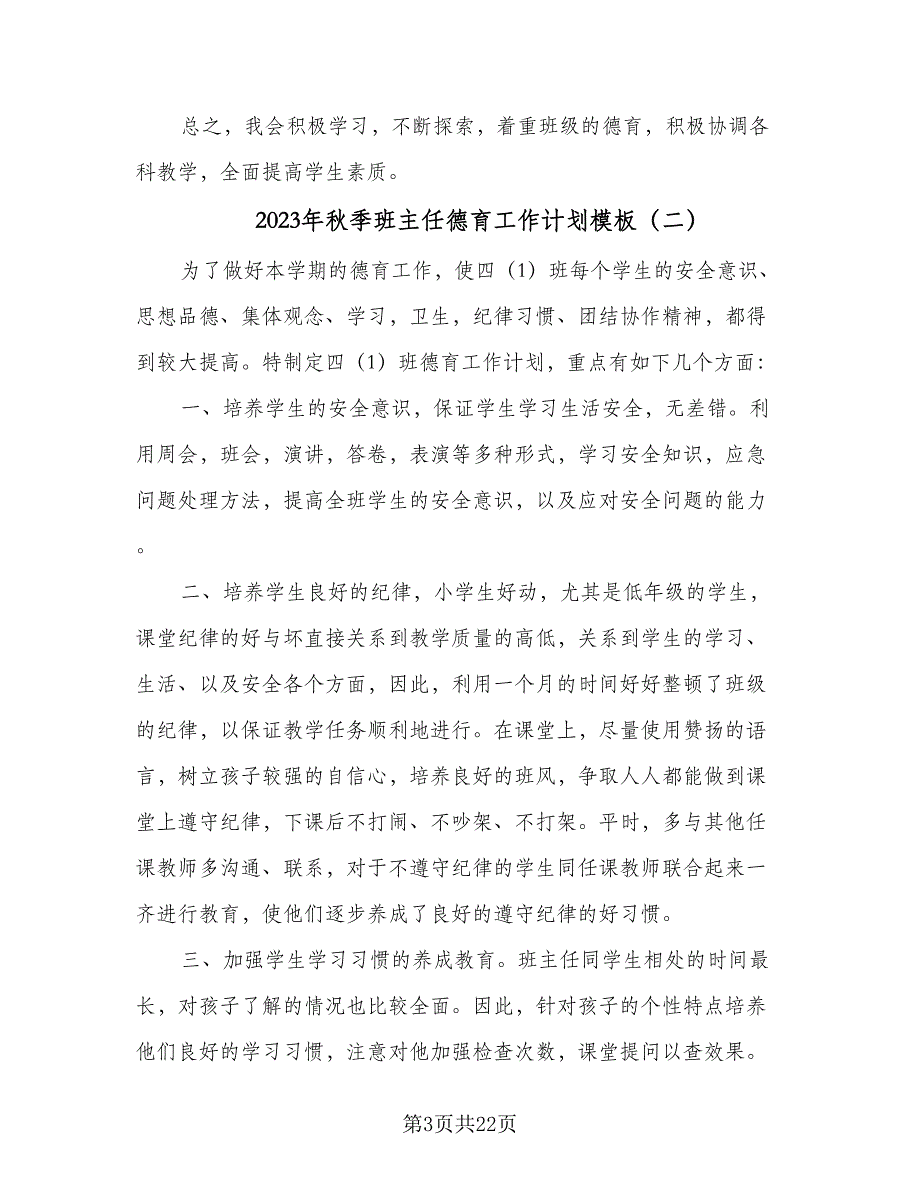 总之，我会积极学习，不断探索，着重班级的德育，积极协调各
科教学，全面提高学生素质。
2023年秋季班主任德育工作计划模板（二）
为了做好本学期的德育工作，使四（1）班每个学生的安全意识、
思想品德、集体观念、学习，卫生，纪律习惯、团结协作精神，都得
到较大提高。特制定四（1）班德育工作计划，重点有如下几个方面：
一、培养学生的安全意识，保证学生学习生活安全，无差错。利
用周会，班会，演讲，答卷，表演等多种形式，学习安全知识，应急
问题处理方法，提高全班学生的安全意识，以及应对安全问题的能力
。
二、培养学生良好的纪律，小学生好动，尤其是低年级的学生，
课堂纪律的好与坏直接关系到教学质量的高低，关系到学生的学习、
生活、以及安全各个方面，因此，利用一个月的时间好好整顿了班级
的纪律，以保证教学任务顺利地进行。在课堂上，尽量使用赞扬的语
言，树立孩子较强的自信心，培养良好的班风，争取人人都能做到课
堂上遵守纪律，下课后不打闹、不吵架、不打架。平时，多与其他任
课教师多沟通、联系，对于不遵守纪律的学生同任课教师联合起来一
齐进行教育，使他们逐步养成了良好的遵守纪律的好习惯。
三、加强学生学习习惯的养成教育。班主任同学生相处的时间最
长，对孩子了解的情况也比较全面。因此，针对孩子的个性特点培养
他们良好的学习习惯，注意对他加强检查次数，课堂提问以查效果。
第3页共22页